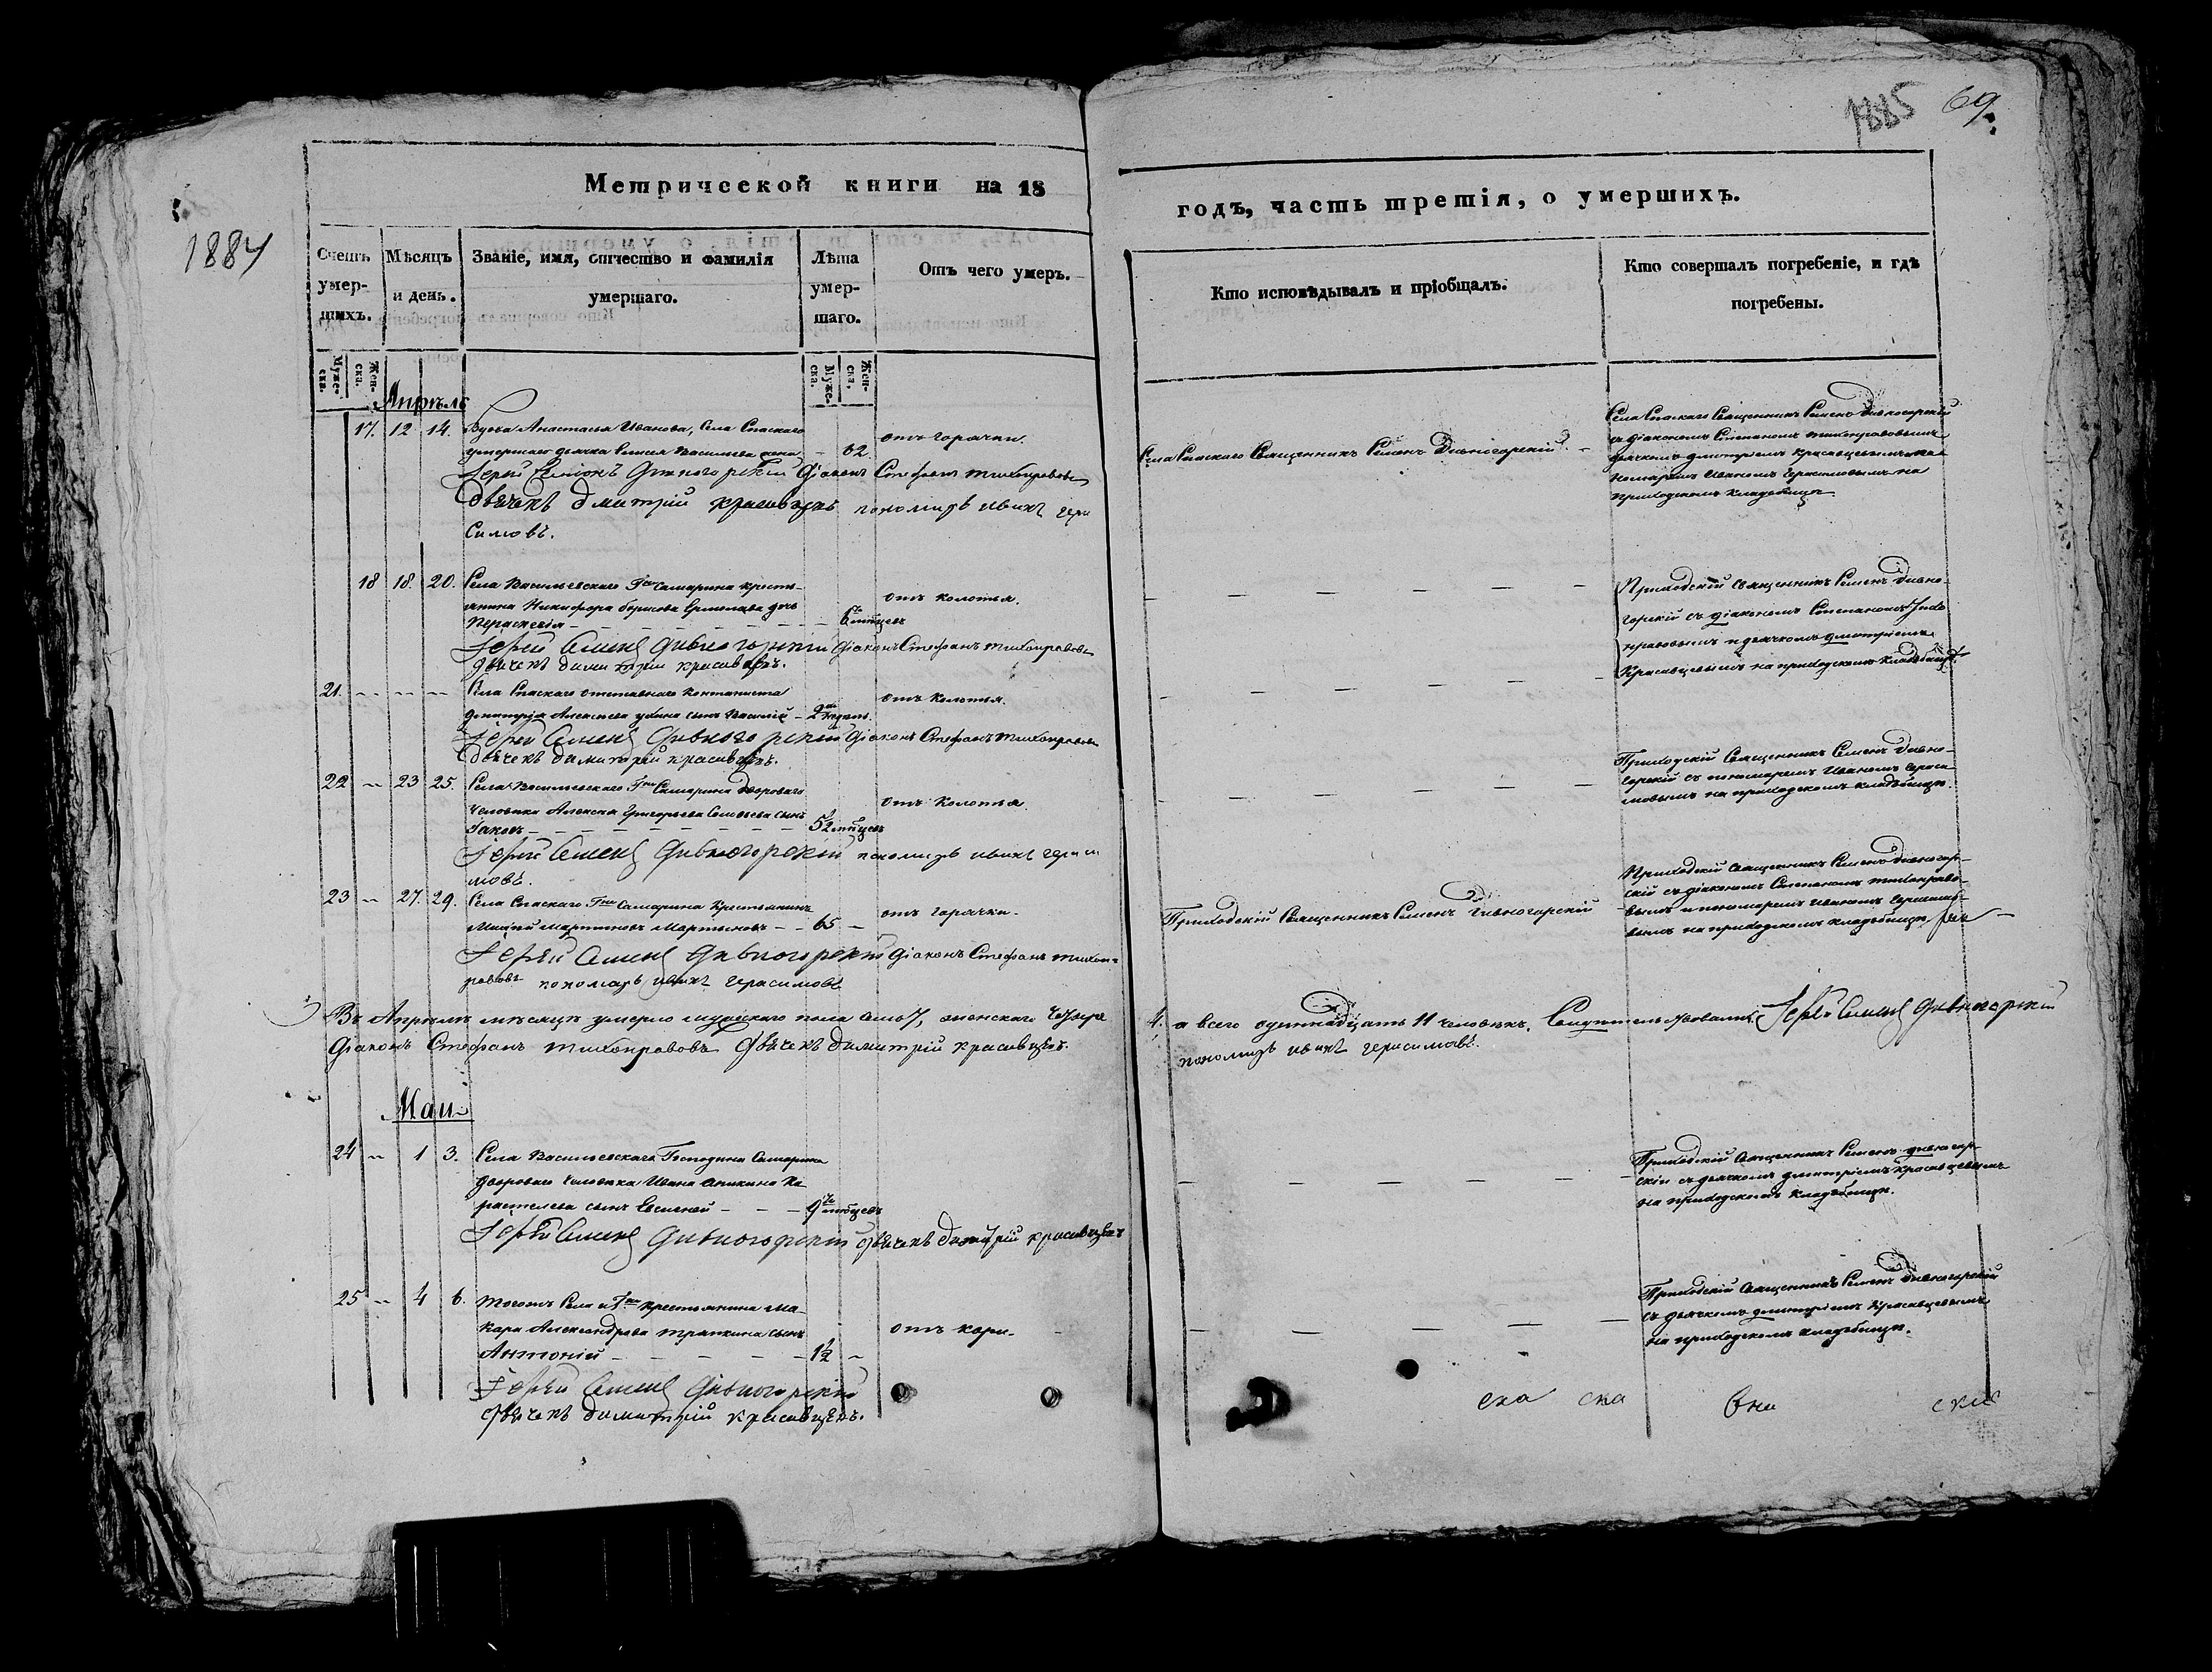 1884
1885 69
Метрической книги на 18
годъ, часть третія, о умершихъ.
Счетъ умер-шихъ.
Мѣсяцъ и день.
Званіе, имя, отчество и фамилія умершаго.
Лѣта умер-шаго.
Отъ чего умеръ.
Кто исповѣдывалъ и пріобщалъ.
Кто совершалъ погребеніе, и гдѣ погребены.
Муже-ска. Жен-ска.
Муже-ска. Жен-ска.
Апрѣль
17. 12 14. Вдова Анастасья Иванова, Села Спаскаго
умершаго дьячка Васильева жена — 62. отъ горячки.
Села Спаскаго Священникъ Семенъ Дивногорскій —
Села Спаскаго Священникъ Семенъ Дивногорскій
съ діакономъ Степаномъ Тихонравовымъ
дьячкомъ Дмитріемъ Красавцевымъ
пономаремъ Иваномъ Герасимовымъ на
приходскомъ кладбищѣ.
Іерей Симіонъ Дивногорскій Діаконъ Стефанъ Тихонравовъ
Дьячекъ Дмитрій Красивцевъ пономарь Иванъ Гера
симовъ.
18 18. 20. Села Васильевскаго Гна Самарина кресть-
янина Никифора Борисова Ермолаева дочь
Параскевія — — — 6ть мѣсцевъ отъ колотья.
Приходскій Священникъ Семенъ Дивно-
горскій съ діакономъ Степаномъ Тихо
нравовымъ и дьячкомъ Дмитріемъ
Красавцевымъ на приходскомъ кладбищѣ.
Іерей Симеонъ Дивногорскій Діаконъ Стефанъ Тихонравовъ
Дьячекъ Димитрій Красивцевъ.
21. — — — Села Спаскаго отставнаго
Дмитрія Алексѣева сынъ Василій — 2 недѣль. отъ колотья.
Іерей Симеонъ Дивногорскій Діаконъ Стефанъ Тихонравовъ
Дьячекъ Димитрій Красивцевъ.
22 — 23 25. Села Васильевскаго Гна Самарина двороваго
человѣка Алексѣя Григорьева Соловьева сынъ
Іаковъ — — — 5½ мѣсцевъ отъ колотья.
Приходскій Священникъ Семенъ Дивно-
горскій съ пономаремъ Иваномъ Гераси
мовымъ на приходскомъ кладбищѣ.
Іерей Симеонъ Дивногорскій пономарь Иванъ Гераси
мовъ.
23 — 27. 29. Села Спаскаго Гна Самарина Крестьянинъ
Мартиновъ Мартыновъ — 65 — отъ горячки.
Приходскій Священникъ Семенъ Дивногорскій
Приходскій Священникъ Семенъ Дивногор-
скій съ діакономъ Степаномъ Тихонраво-
вымъ и пономаремъ Иваномъ Герасимо-
вымъ на приходскомъ кладбищѣ
Іерей Симеонъ Дивногорскій Діаконъ Стефанъ Тихон-
равовъ пономарь Иванъ Герасимовъ
Въ Апрѣлѣ мѣсяцѣ умерло мужскаго пола семь 7, женскаго четыре
4. а всего одиннадцать 11 человѣкъ. Свидѣтельствовали: Іерей Симеонъ Дивногорскій
Діаконъ Стефанъ Тихонравовъ Дьячекъ Димитрій Красивцевъ.
пономарь Иванъ Герасимовъ.
Маи
24 — 1 3. Села Васильевскаго Господина Самарина
двороваго человѣка Ивана Аникина Ка
сынъ Евсигней — — — 9 мѣсцевъ
Приходскій Священникъ Семенъ Дивногор-
скій съ дьячкомъ Дмитріемъ Красавцевымъ
на приходскомъ кладбищѣ.
Іерей Симеонъ Дивногорскій Дьячекъ Димитрій Красивцевъ
25 — 4 6. Тогожъ Села и Гна крестьянина Ма-
кара Александрова Тряпкина сынъ
Антоній — — — 1½ — отъ кори.
Приходскій Священникъ Семенъ Дивногорскій
съ дьячкомъ Дмитріемъ Красавцевымъ
на приходскомъ кладбищѣ.
Іерей Симеонъ Дивногорскій
Дьячекъ Димитрій Красивцевъ.
ска ска